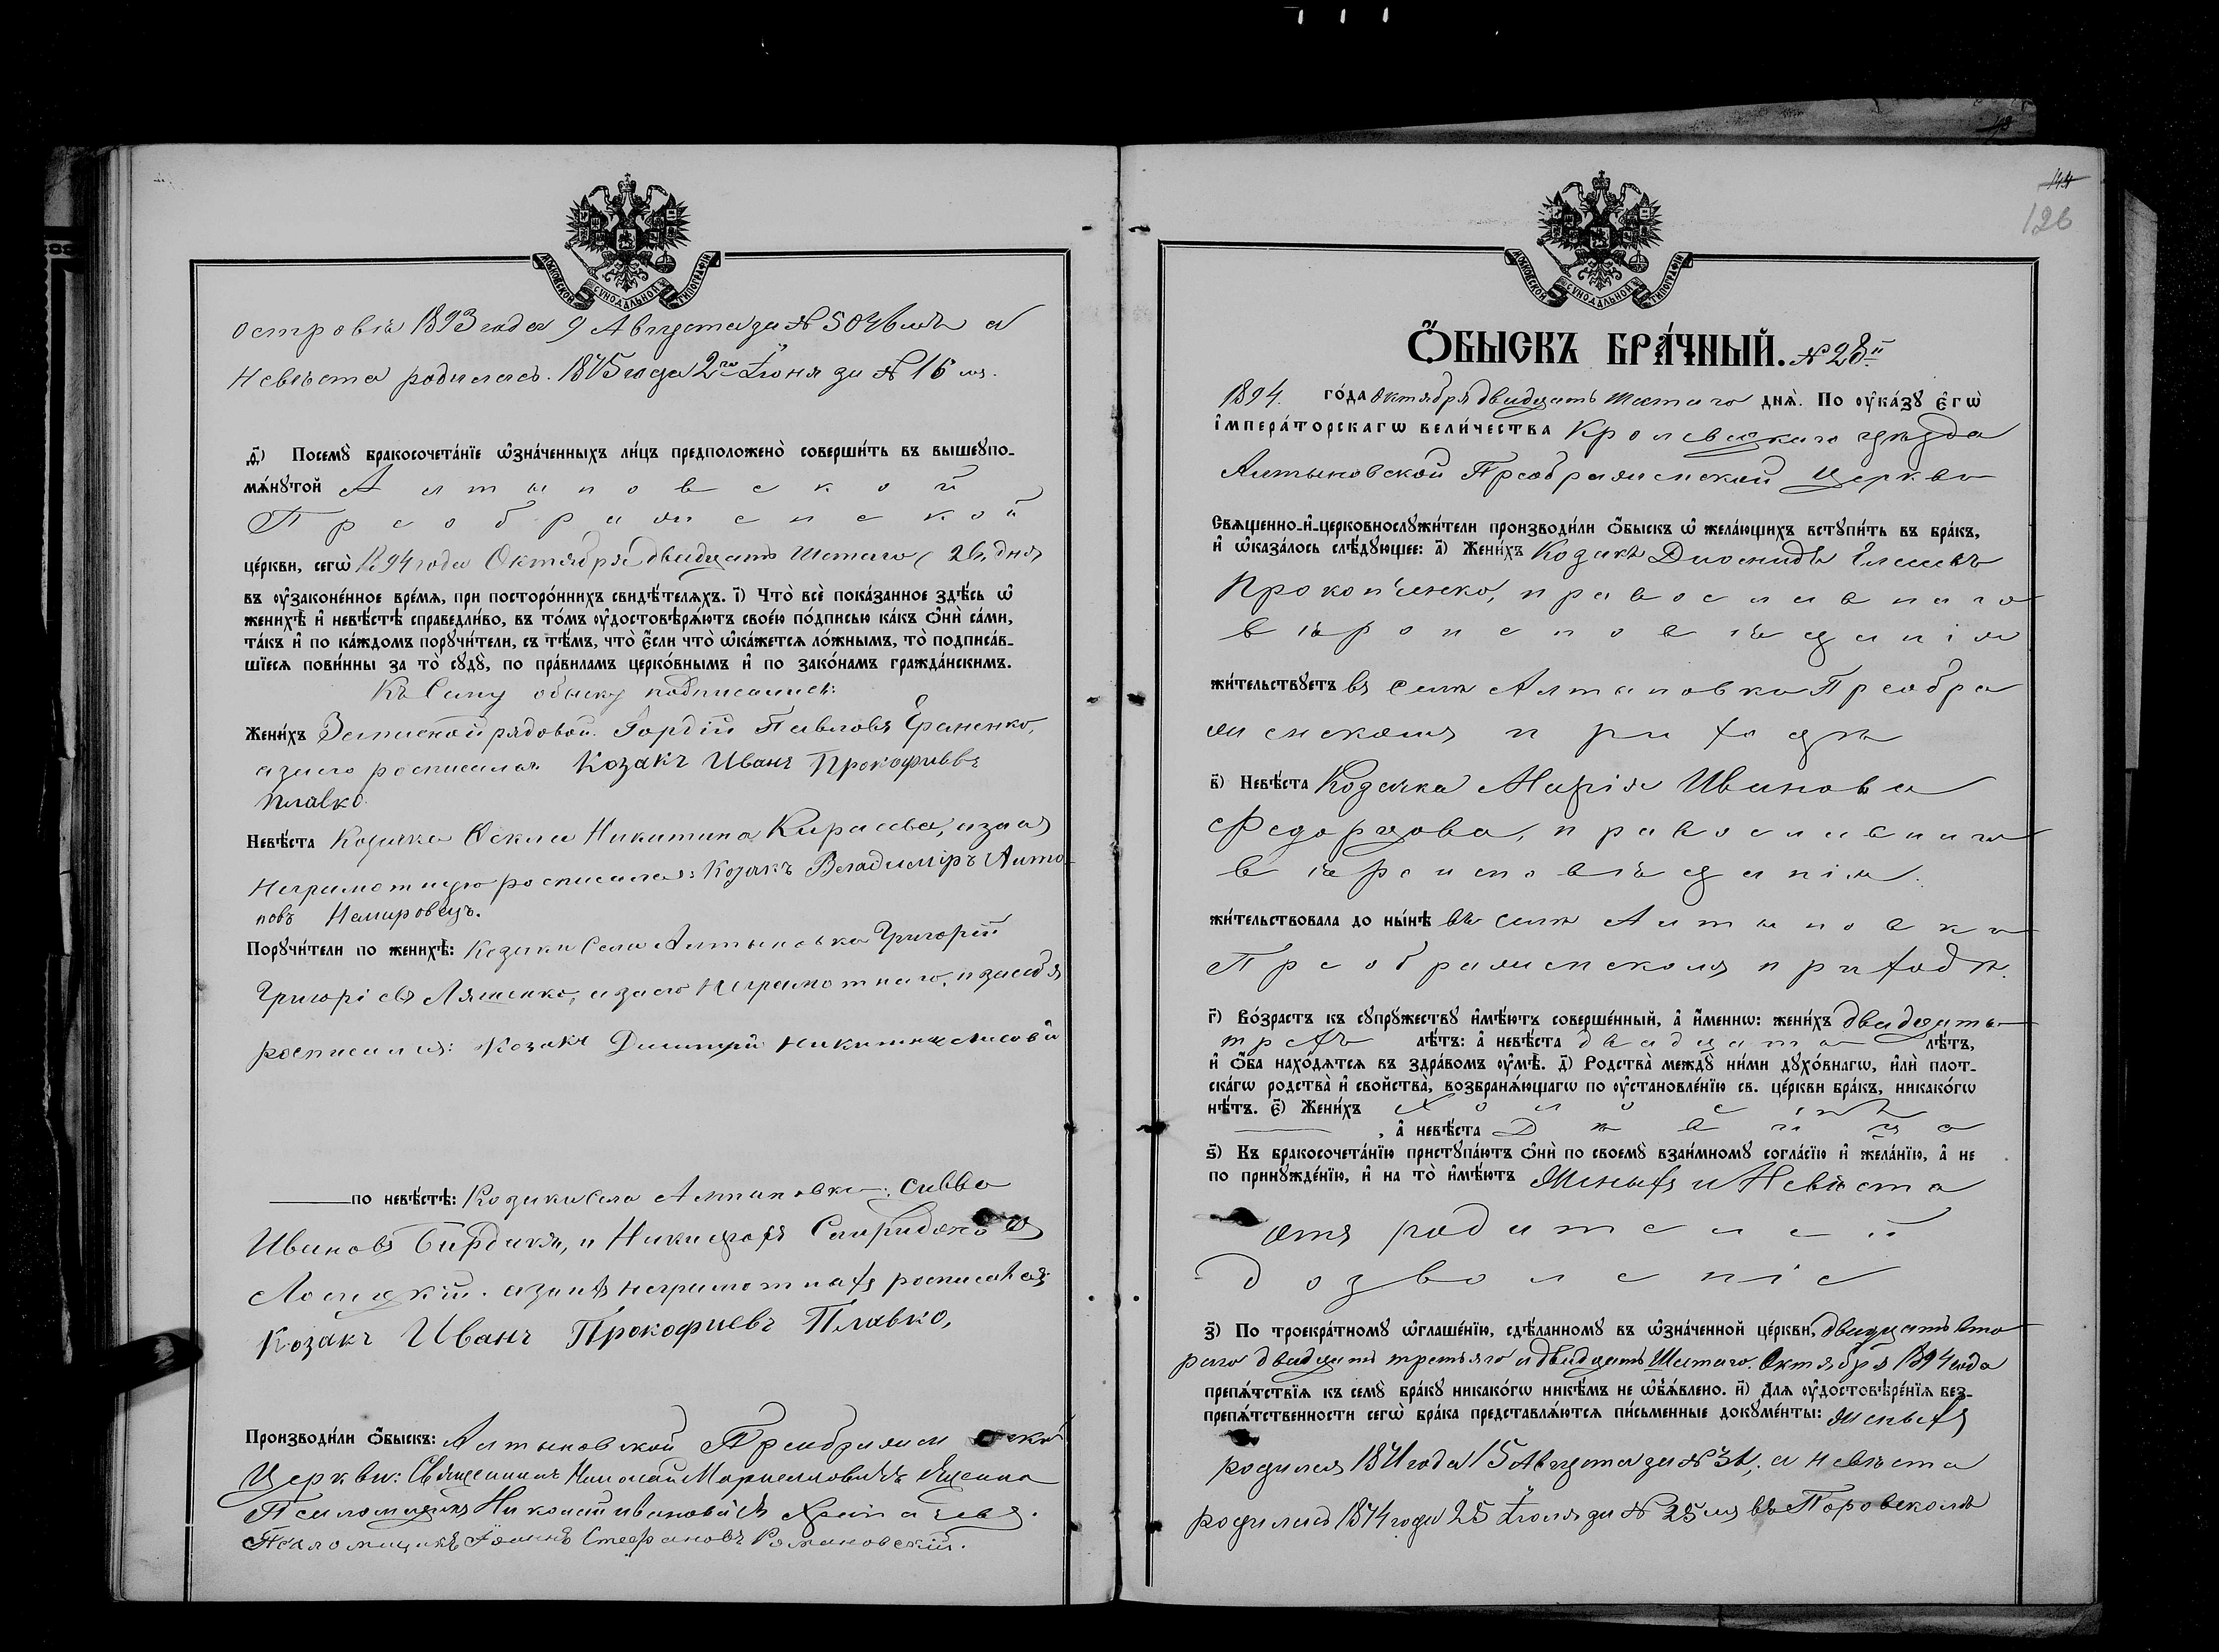 МОСКОВСКОЙ СѴНОДАЛЬНОЙ ТИПОГРАФІИ
1893 года 9 Августа за № а
Невѣста родилась 1875 года 2го Іюня за № 16 мъ.
д҃і) Посемꙋ бракосочетáнїе ѡ҆знáченныхъ ли́цъ предположено̀ соверши́ть въ вышеꙋпо-
мѧ́нꙋтой Алтыновской
Преображенской
цéркви, сегѡ̀ 1894 года Октября двадцать шестаго (26) дня
въ ѹ҆законéнное врéмѧ, при посторо́ннихъ свидѣ́телѧхъ. і҃) Что̀ всѐ пока́занное здѣ́сь ѡ҆
женихѣ̀ и҆ невѣ́стѣ справедли́во, въ то́мъ ѹ҆достовѣрѧ́ютъ своéю по́дписью ка́къ ѻ҆нѝ са́ми,
та́къ и҆ по ка́ждомъ порꙋчи́тели, съ тѣ́мъ, что̀ є҆́сли что̀ ѡ҆ка́жетсѧ ло́жнымъ, то̀ подписа́в-
шїесѧ пови́нны за то̀ сꙋдꙋ̀, по пра́виламъ церко́внымъ и҆ по зако́намъ гражда́нскимъ.
Къ сему обыску подписались:
Жени́хъ Запасной рядовой Гордій Павловъ Ераненко,
а за него росписался Козакъ Иванъ Прокофиевъ
Плавко.
Невѣ́ста Козачка Текла Никитина Кирасева, а за нея
неграмотную росписался: Козакъ Владиміръ Анто-
новъ Немировецъ.
Порꙋчи́тели по женихѣ̀: Козаки села Алтыновки Григорій
Григоріевъ Ляшенко, а за него неграмотнаго, и за себя
росписался: Козакъ Димитрій Никитин
по невѣ́стѣ: Козаки села Алтыновки: Савва
Ивановъ Бирдакъ, и Никифоръ Спиридоновъ
Лосицкій. а за нихъ неграмотныхъ росписался
Козакъ Иванъ Прокофиевъ Плавко,
Производи́ли ѻ҆́быскъ: Алтыновской Преображенской
Церкви: Священникъ Николай
Псаломщикъ Николай Ивановичъ
Псаломщикъ Іоаннъ Стефановъ Романовскій.
144
126
МОСКОВСКОЙ СѴНОДАЛЬНОЙ ТИПОГРАФІИ
Ѻ҆́БЫСКЪ БРА́ЧНЫЙ. № 28й
1894. го́да Октября двадцать шестаго днѧ̀. По ѹ҆ка́зꙋ є҆гѡ̀
і҆мпера́торскагѡ вели́чества Кролевецкаго уѣзда
Алтыновской Преображенской Церкви
Свѧщенно-и҆-церковнослꙋжи́тели производи́ли ѻ҆́быскъ ѡ҆ жела́ющихъ встꙋпи́ть въ бра́къ,
и҆ ѡ҆каза́лось слѣ́дꙋющее: а҃) Жени́хъ Козакъ Диомидъ
Прокопченко, православнаго
вѣроисповѣданія
жи́тельствꙋетъ въ селѣ Алтыновки Преобра
женскомъ приходѣ
в҃) Невѣ́ста Козачка Марія Иванова
Федорцова, православнаго
вѣроисповѣданія.
жи́тельствовала до ны́нѣ въ селѣ Алтыновки
Преображенскомъ приходѣ.
г҃) Во́зрастъ къ сꙋпрꙋжествꙋ и҆мѣ́ютъ совершéнный, а҆ и҆́меннѡ: жени́хъ двадцати
трехъ лѣ́тъ: а҆ невѣ́ста двадцати лѣ́тъ,
и҆ ѻ҆́ба нахо́дѧтсѧ въ здра́вомъ ѹ҆мѣ̀. д҃) Родства̀ междꙋ̀ ни́ми дꙋхо́внагѡ, и҆лѝ плот-
ска́гѡ родства̀ и҆ свойства̀, возбранѧ́ющагѡ по ѹ҆становлéнїю св. цéркви бра́къ, никако́гѡ
нѣ́тъ. є҃) Жени́хъ Холостъ
, а҆ невѣ́ста Дѣвица
ѕ҃) Къ бракосочета́нїю пристꙋпа́ютъ ѻ҆нѝ по своемꙋ̀ взаи́мномꙋ согла́сїю и҆ жела́нїю, а҆ не
по принꙋждéнїю, и҆ на то̀ и҆мѣ́ютъ Женихъ и Невѣста
отъ родителей
дозволеніе
з҃) По троекра́тномꙋ ѡ҆глашéнїю, сдѣ́ланномꙋ въ ѡ҆знáченной цéркви, двадцать вто
раго двадцать третьяго и двадцать шестаго Октября 1894 года
препѧ́тствїѧ къ семꙋ̀ бра́кꙋ никако́гѡ никѣ́мъ не ѡ҆б̾ѧ́влено. и҃) Длѧ ѹ҆достовѣрéнїѧ без-
препѧ́тственности сегѡ̀ бра́ка представлѧ́ютсѧ пи́сьменные докꙋмéнты: Женихъ
родился 1871 года 15 Августа за № 31, а Невѣста
родилась 1874 года 25 Іюля за № 25 мъ въ